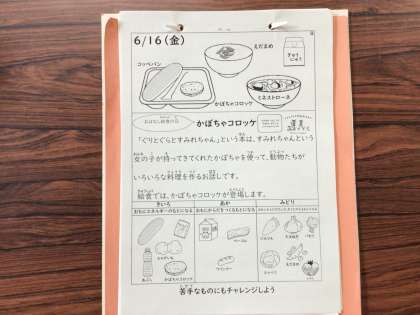 6/16(金)
えだまめ
ぎゅうにゅう
コッペパン
かぼちゃコロッケ
ミネストローネ
かぼちゃコロッケ
「ぐりとぐらとすみれちゃん」という本は、すみれちゃんという
女の子が持ってきてくれたかぼちゃを使って、動物たちが
いろいろな料理を作るお話です。
給食では、かぼちゃコロッケが登場します。
きいろ
あか
みどり
おもにエネルギーのもとになる
おもにからだをつくるもとになる
じゃがいも
あぶら
かぼちゃコロッケ
ベーコン
ウインナー
えだまめ
苦手なものにもチャレンジしよう